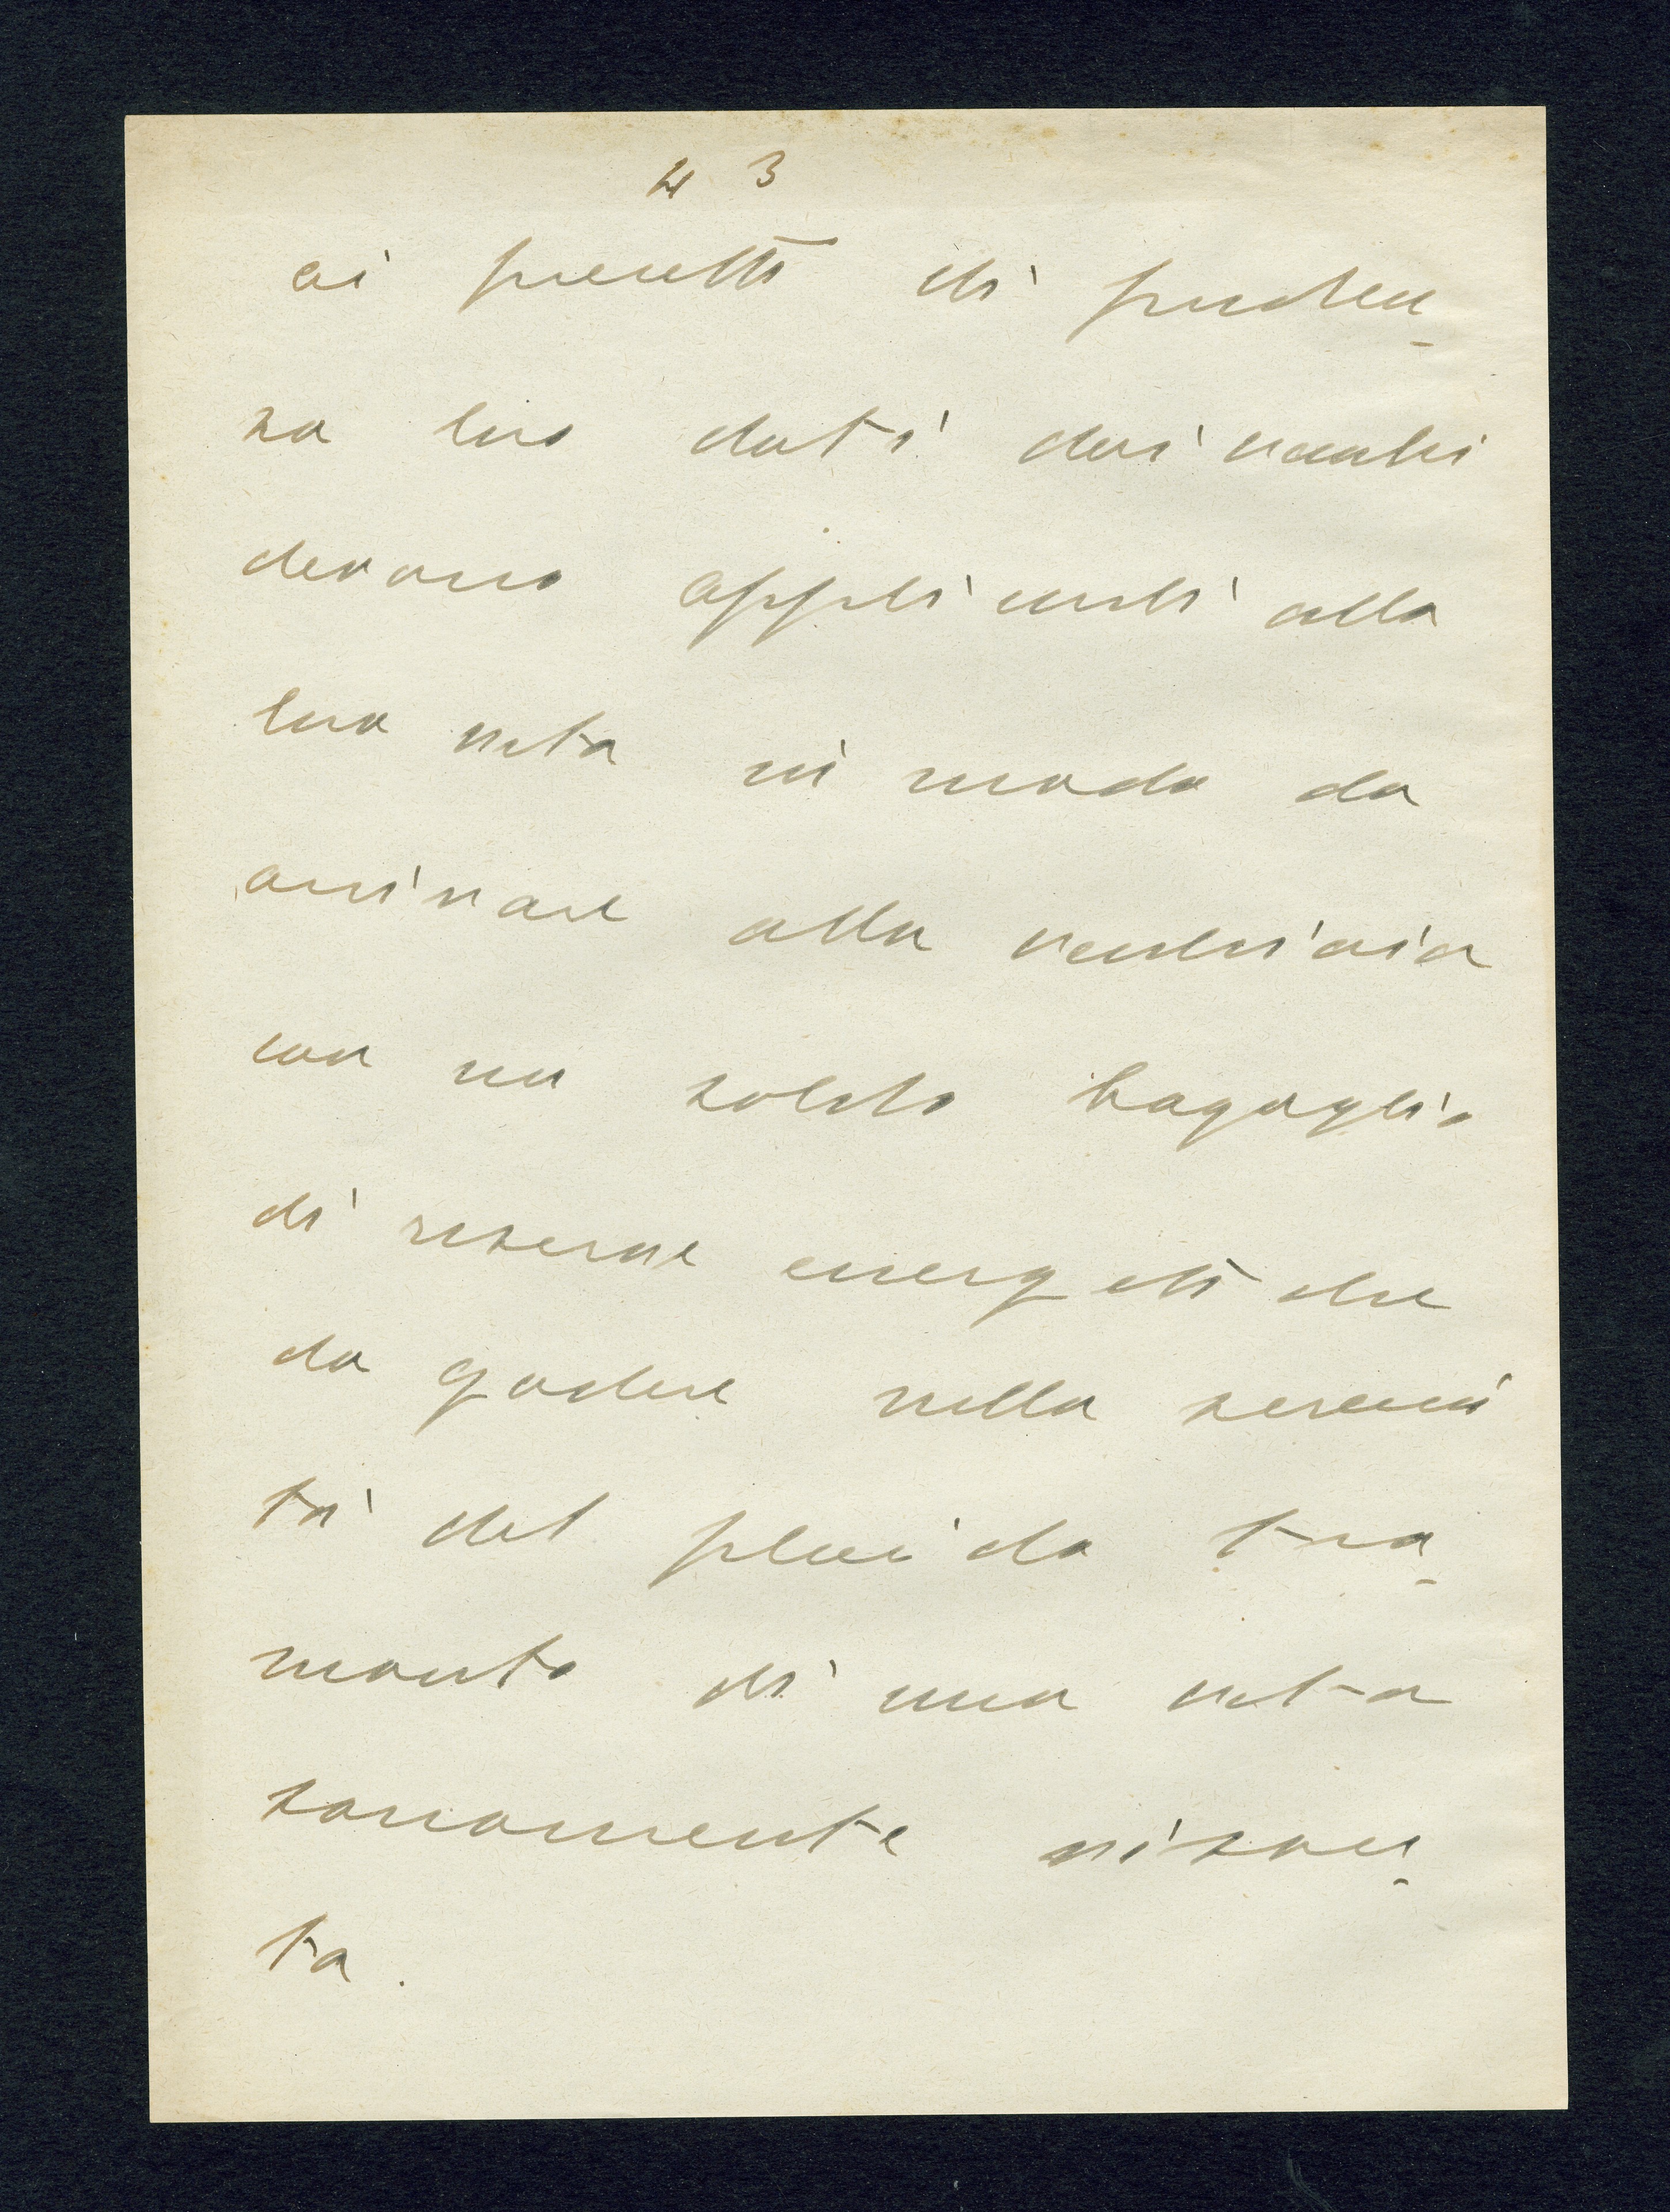 43
ai precetti di pruden-
za loro dati dai vecchi
devono applicarli alla
loro vita in modo da
arrivare alla vecchiaia
con un solido bagaglio
di riserve energetiche
da godere nella sereni
tà del placido tra-
monto di una vita
sanamente vissu-
ta.